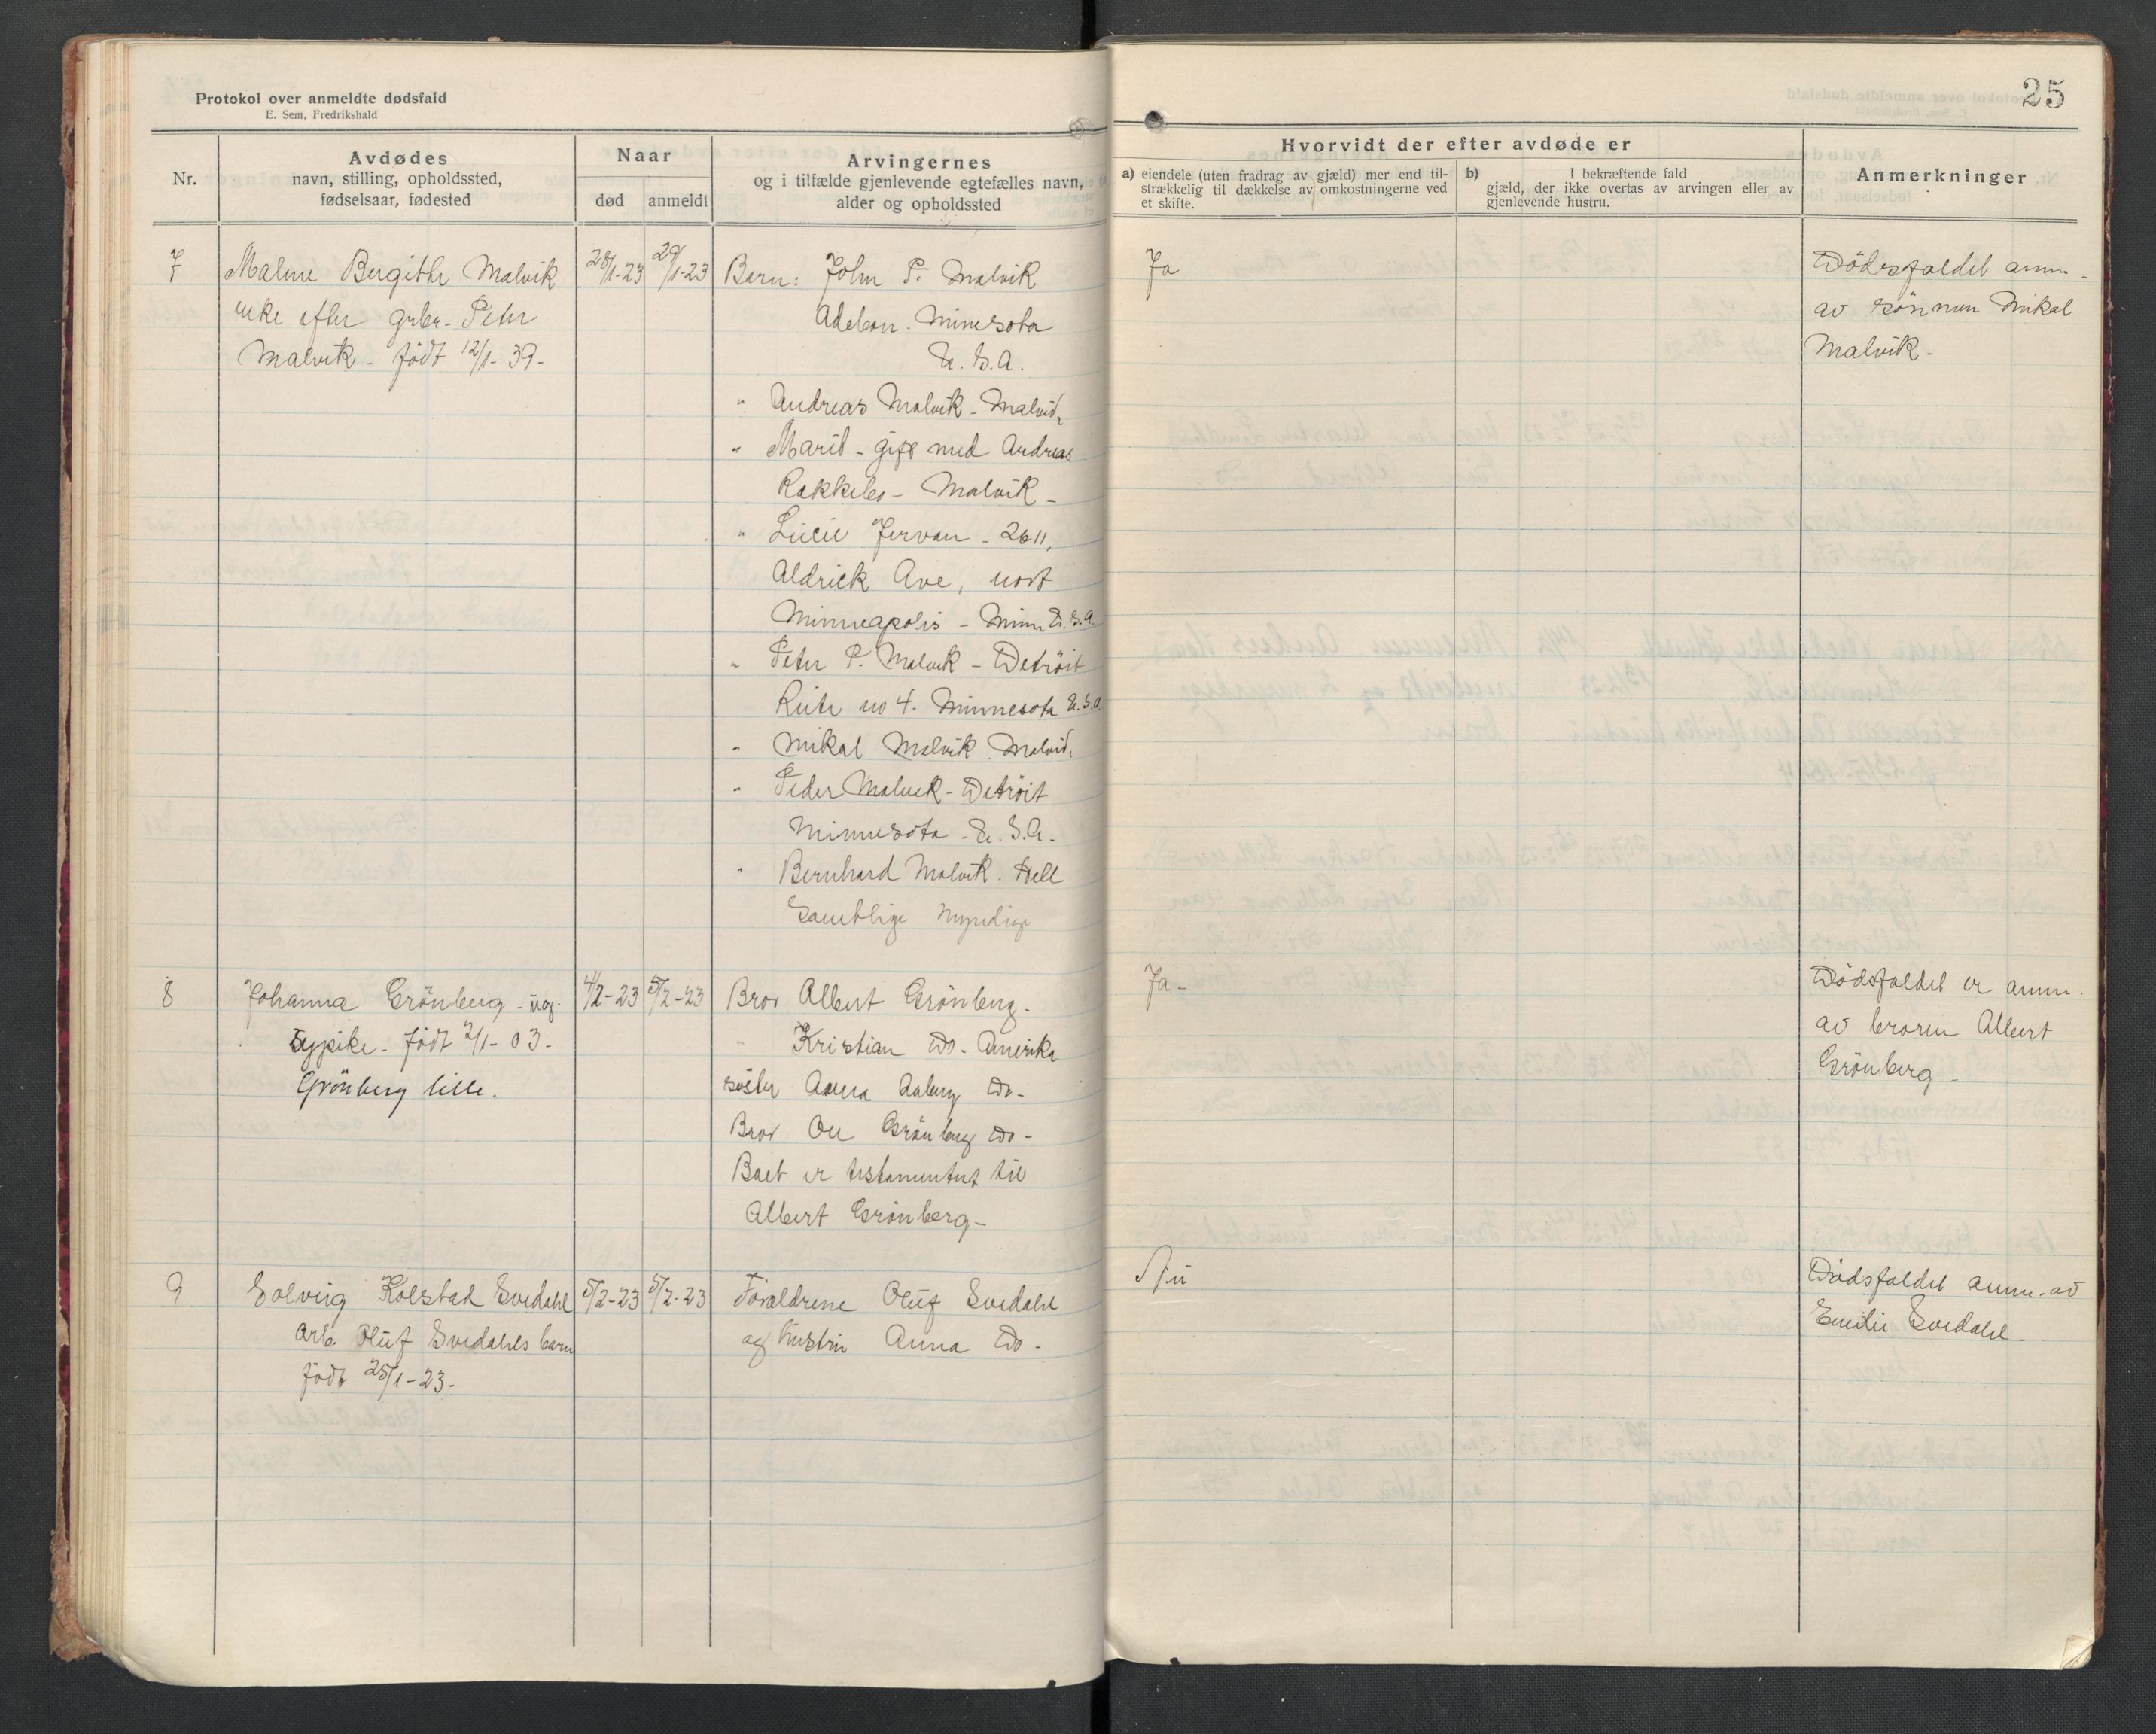 Protokol over anmeldte dødsfald
E. Sem, Fredrikshald
25
Nr.
Avdødes
navn, stilling, opholdssted,
fødselsaar, fødested
Naar
død
anmeldt
Arvingernes
og i tilfælde gjenlevende egtefælles navn,
alder og opholdssted
Hvorvidt der efter avdøde er
a) eiendele (uten fradrag av gjæld) mer end til-
strækkelig til dækkelse av omkostningerne ved
et skifte.
b) I bekræftende fald
gjæld, der ikke overtas av arvingen eller av
gjenlevende hustru.
Anmerkninger
7
Malene Bergithe Malvik
enke efter grbr. Peter
Malvik - født 12/1-39-
28/1-23
29/1-23
Barn: John P. Malvik
Minesota
U.S.A.
" Andreas Malvik - Malvik
" Marit - gift med Andreas
Malvik -
" Lucie Jervan - 2611,
Aldrick Ave, nort
Minneapolis - Minn U.S.A.
" Peter P. Malvik - Detröit
Rute no 4. Minnesota U.S.A.
" Mikal Malvik Malvik
" Peder Malvik - Detröit
Minnesota - U.S.A.
" Bernhard Malvik. Hell
Samtlige myndige
Ja
Dödsfaldet anm.
av sönnen Mikal
Malvik -
8
Johanna Grönberg - ug.
pike - født 2/1-03-
Grönberg lille.
4/2-23
5/2-23
Bror Albert Grönberg.
" Kristian do - Amerika
söster Anna Aaberg do -
Bror Ole Grönberg do -
Boet er testamentert til
Albert Grönberg -
Ja -
Dödsfaldet er anm.
av broren Albert
Grönberg -
9
Solveig Kolstad Svedahl
Arb. Oluf Svedahls barn
født 25/1-23-
5/2-23
5/2-23
Forældrene Oluf Svedahl
og hustru Anna do -
Nei
Dödsfaldet anm. av
Emilie Svedahl -